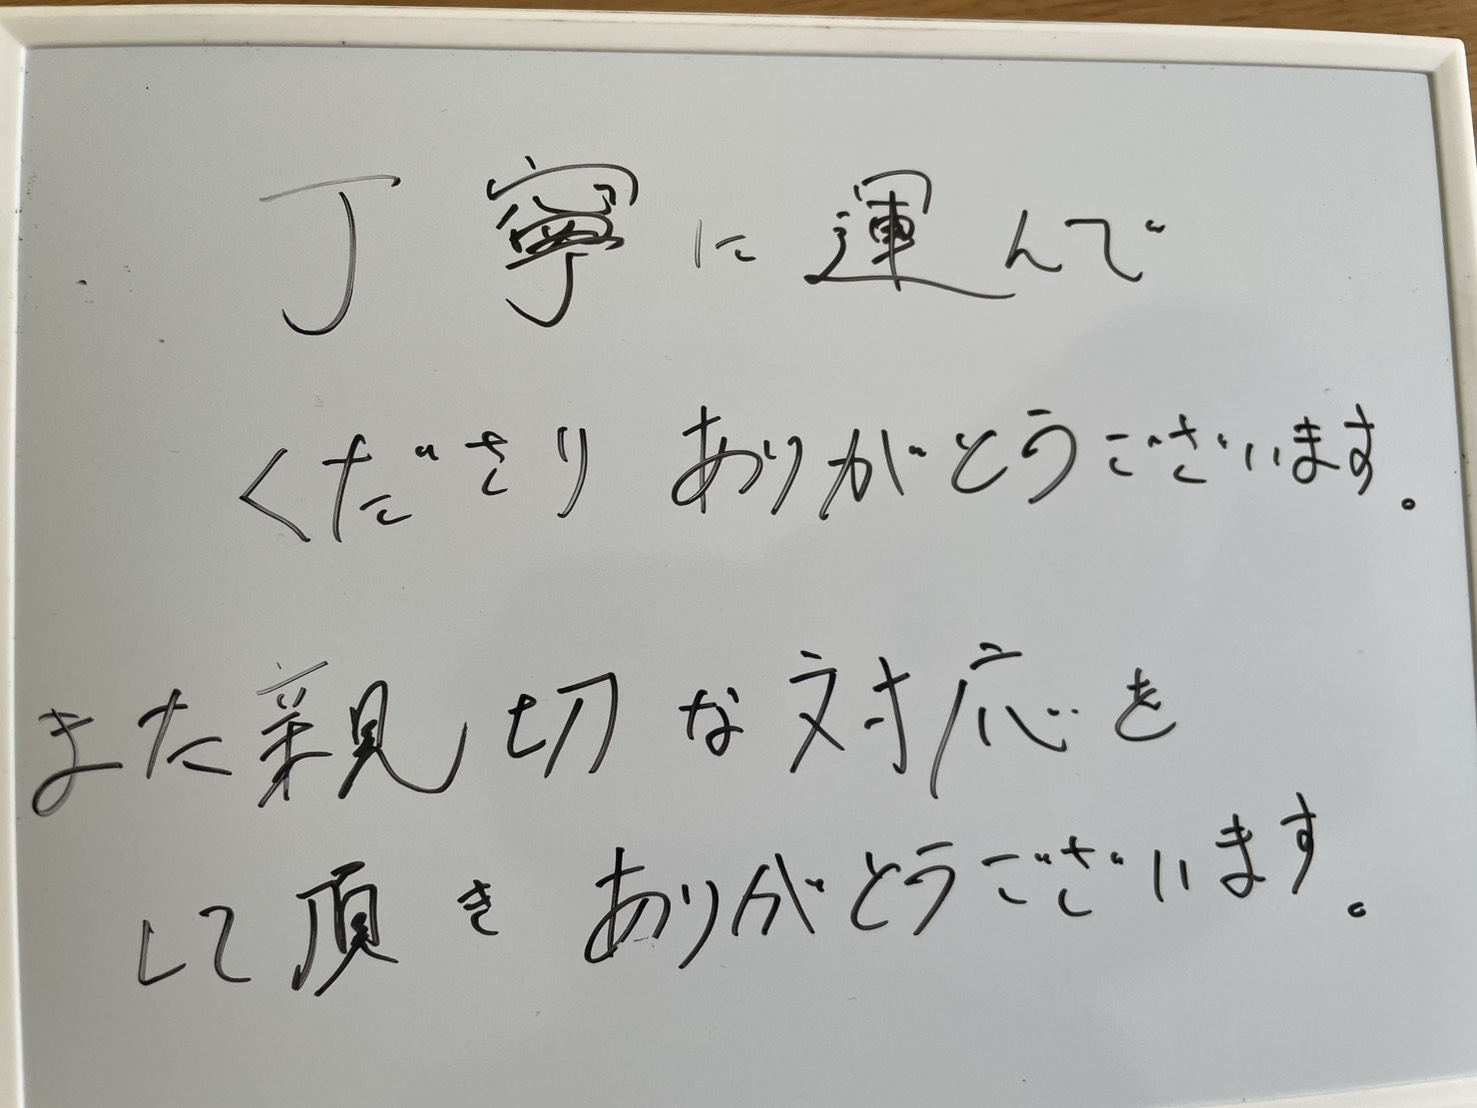 丁寧に運んで
くださりありがとうございます。
また親切な対応を
して頂きありがとうございます。